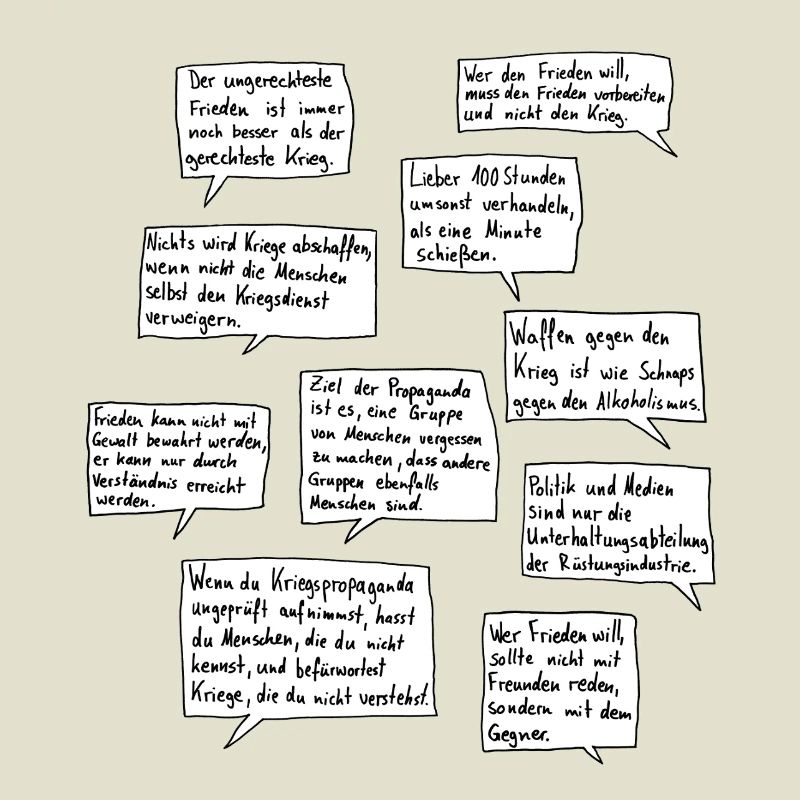 Der ungerechteste
Frieden ist immer
noch besser als der
gerechteste Krieg.
Wer den Frieden will,
muss den Frieden vorbereiten
und nicht den Krieg.
Lieber 100 Stunden
umsonst verhandeln,
als eine Minute
schießen.
Nichts wird Kriege abschaffen,
wenn nicht die Menschen
selbst den Kriegsdienst
verweigern.
Waffen gegen den
Krieg ist wie Schnaps
gegen den Alkoholismus.
Ziel der Propaganda
ist es, eine Gruppe
von Menschen vergessen
zu machen, dass andere
Gruppen ebenfalls
Menschen sind.
Frieden kann nicht mit
Gewalt bewahrt werden,
er kann nur durch
Verständnis erreicht
werden.
Politik und Medien
sind nur die
Unterhaltungsabteilung
der Rüstungsindustrie.
Wenn du Kriegspropaganda
ungeprüft aufnimmst, hasst
du Menschen, die du nicht
kennst, und befürwortest
Kriege, die du nicht verstehst.
Wer Frieden will,
sollte nicht mit
Freunden reden,
sondern mit dem
Gegner.